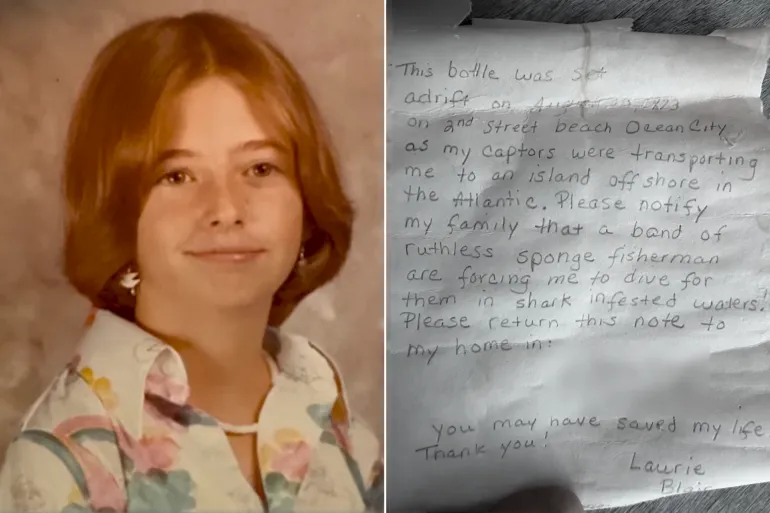 This bottle was set
adrift on August 1973
on 2nd street beach Ocean City
as my captors were transporting
me to an island off shore in
the Atlantic. Please notify
my family that a band of
ruthless sponge fisherman
are forcing me to dive for
them in shark infested waters!
Please return this note to
my home in:
you may have saved my life
Thank you!
Laurie
Blair